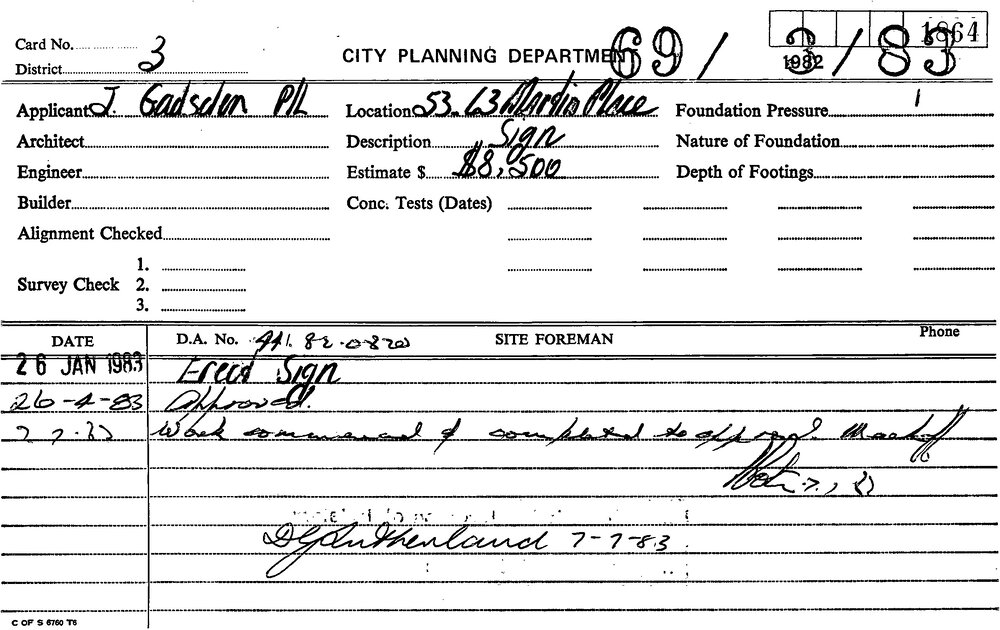 1864
Card No. 3 CITY PLANNING DEPARTMENT 69 / 3 / 83
District 1982
Applicant J. Gadsden P/L Location 53-63 Martin Place Foundation Pressure
Architect Description Sign Nature of Foundation
Engineer Estimate $ $8,500 Depth of Footings
Builder Conc. Tests (Dates)
Alignment Checked
1.
Survey Check 2.
3.
DATE D.A. No. 441.82.0820 SITE FOREMAN Phone
26 JAN 1983 Erect Sign
26-4-83 Approved.
7.7.83 Work commenced & completed to approval.
7-7-83
DG Sutherland 7-7-83
C OF S 6760 T6